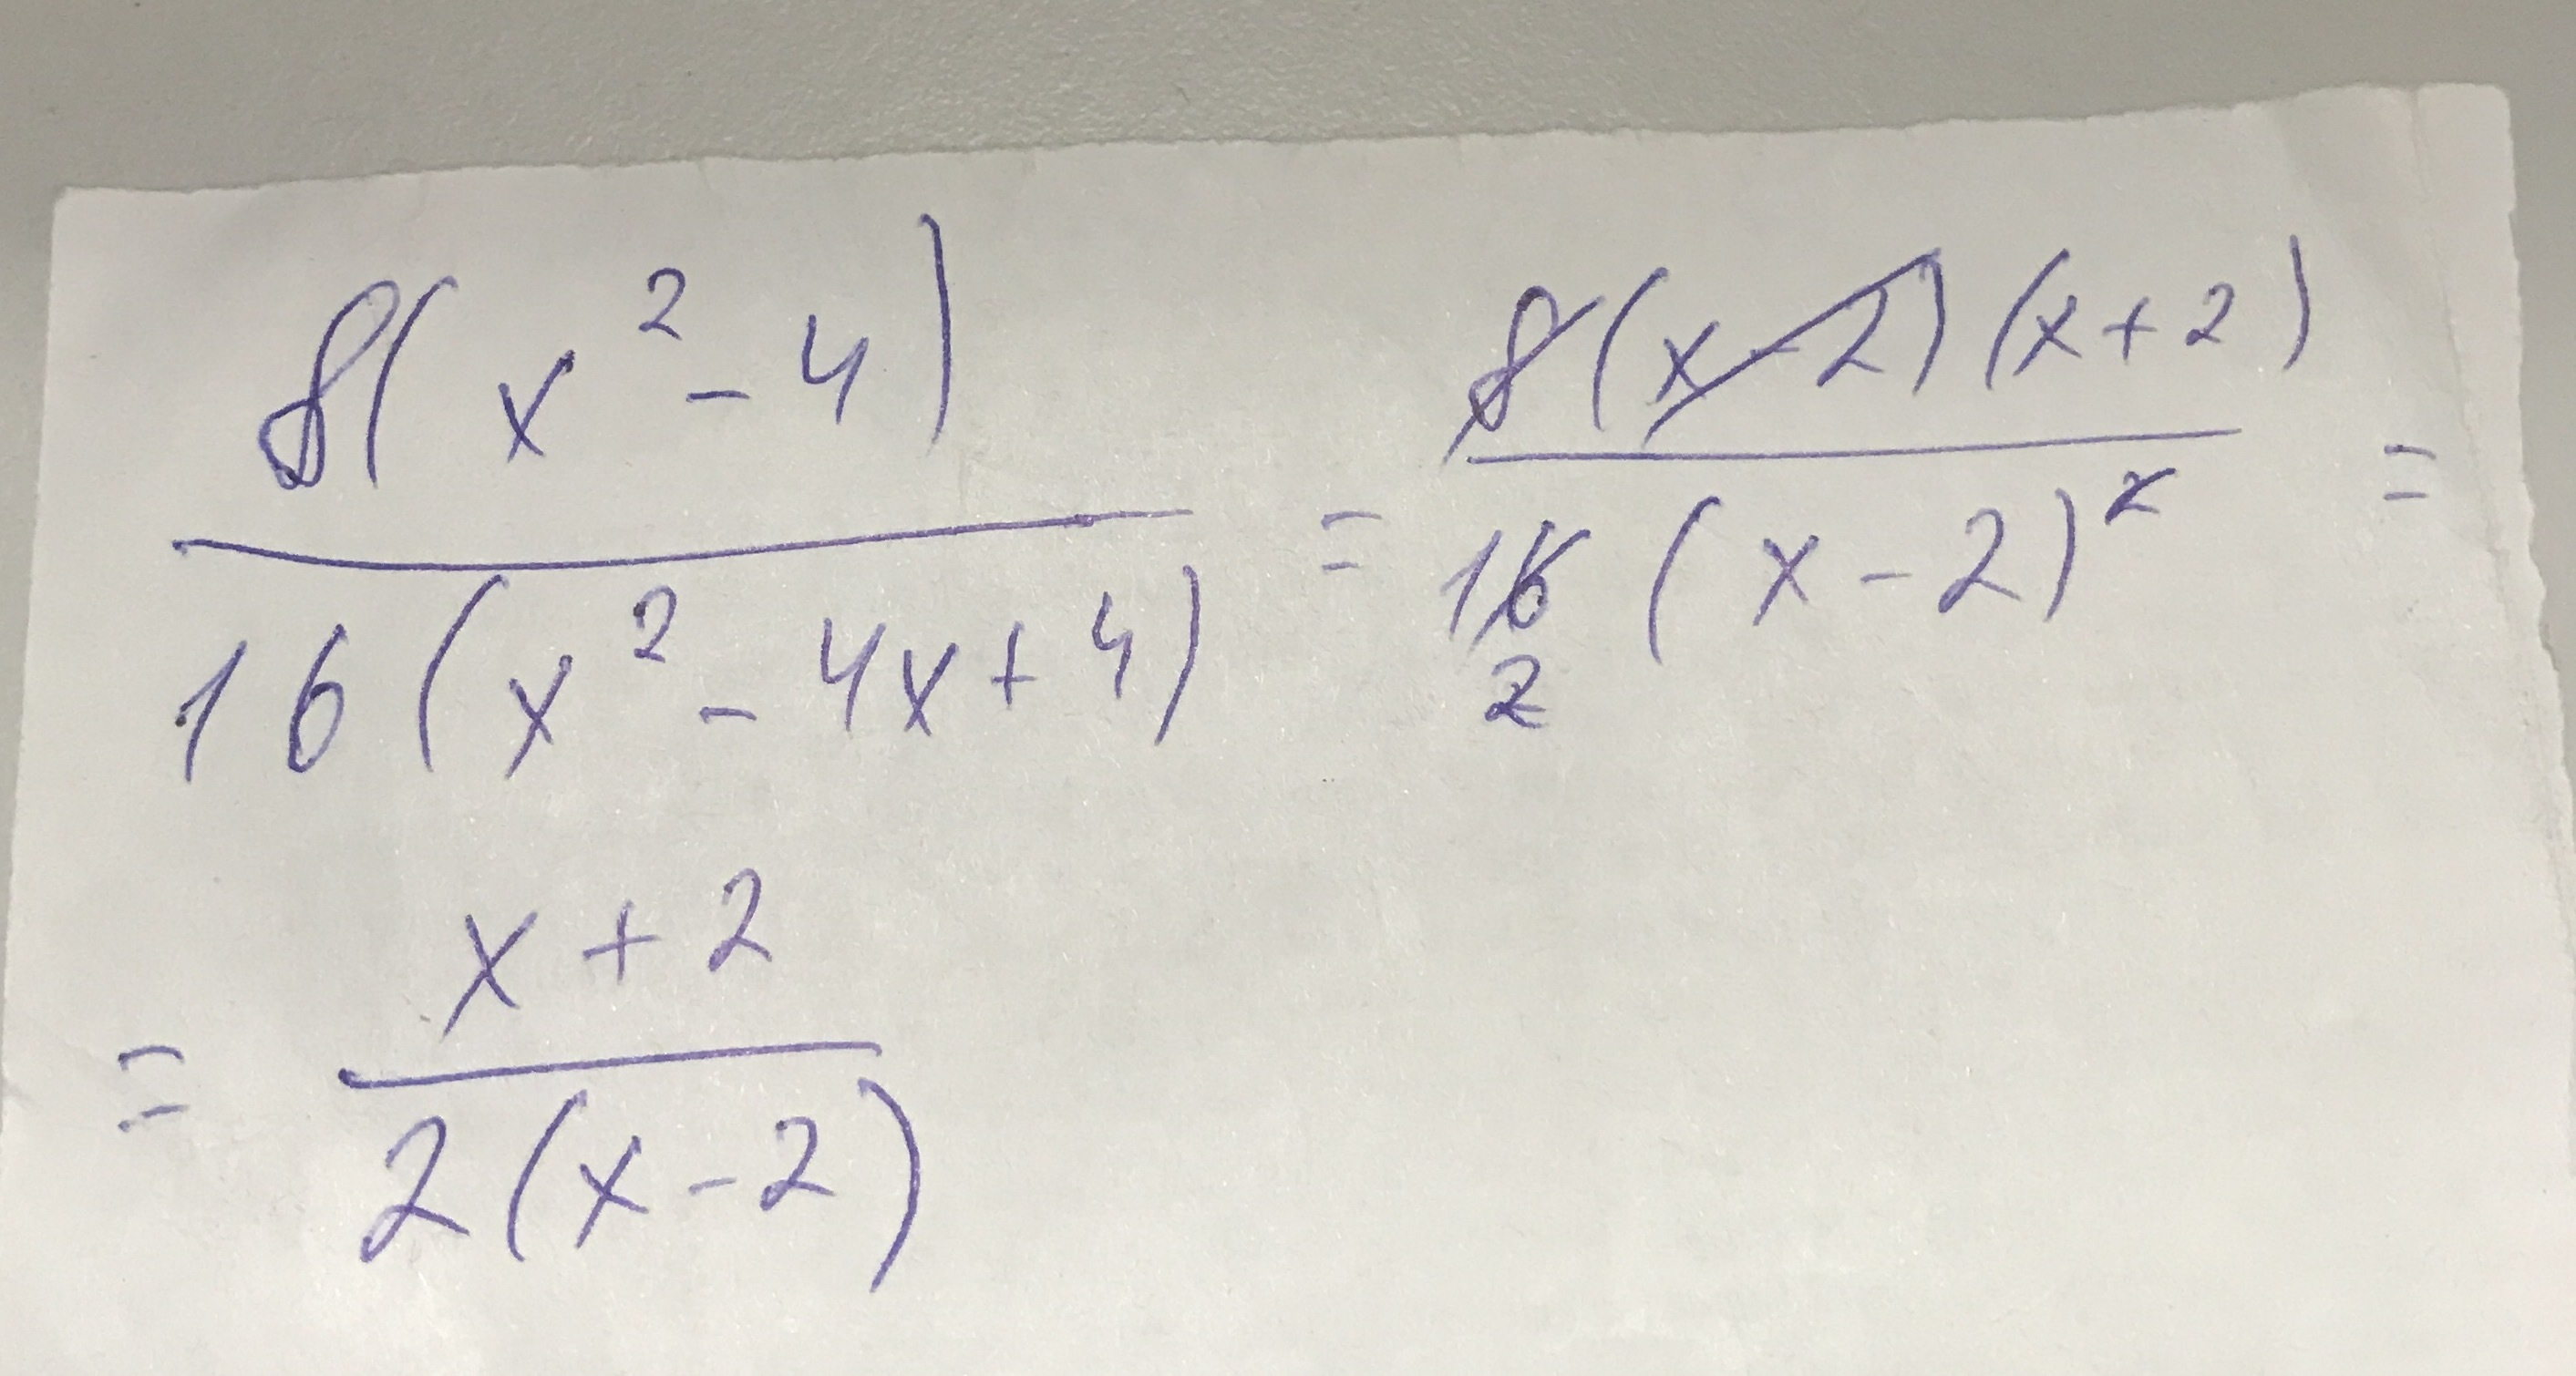 8(x² - 4) / 16(x² - 4x + 4) = 8(x-2)(x+2) / 16 2 (x-2)² =
= x + 2 / 2(x-2)